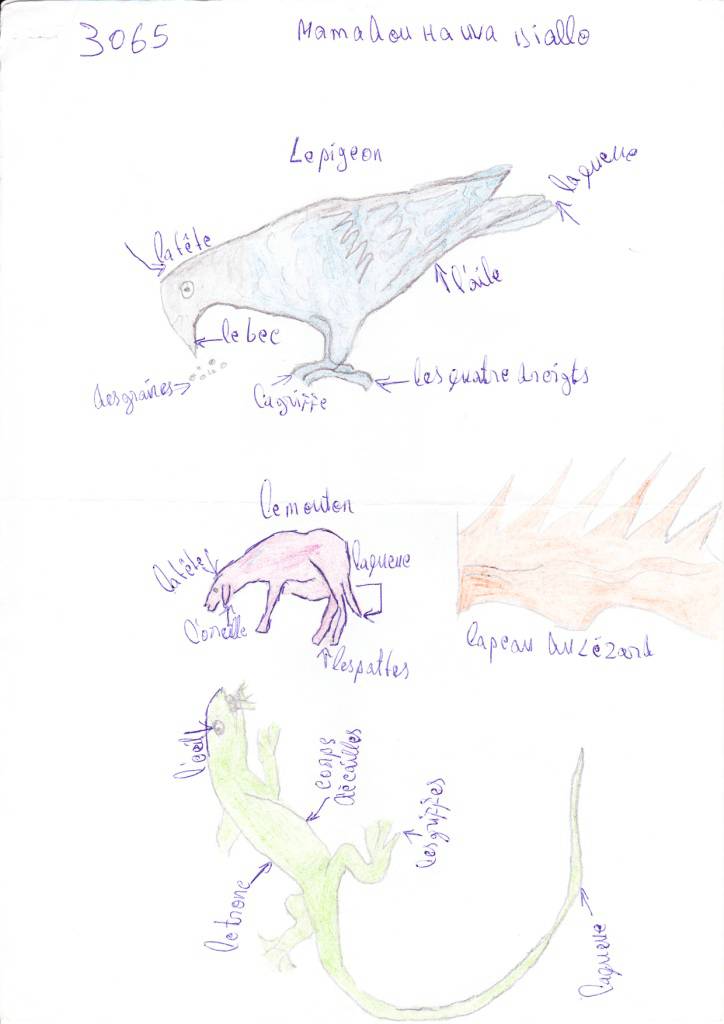 3065
Mamadou Hauva Diallo
Le pigeon
la queue
la tête
l'aile
le bec
les quatre droigts
des graines
la griffe
le mouton
la tête
la queue
l'oreille
les pattes
la peau du Lézard
l'œil
corps
décailles
les griffes
le tronc
la queue